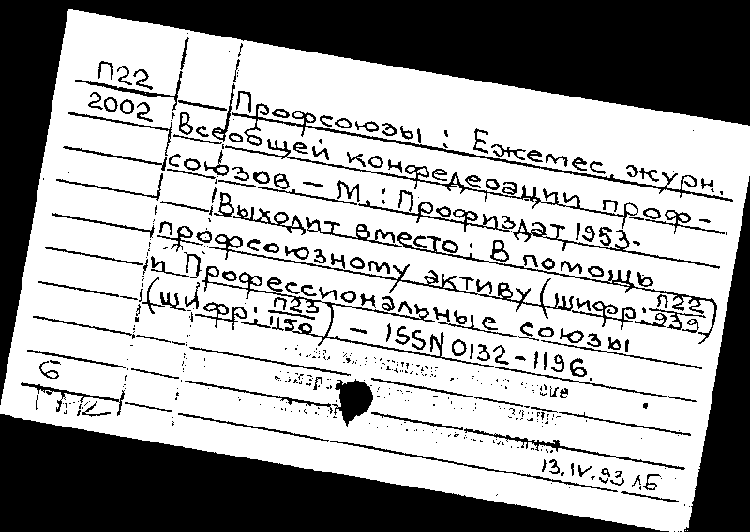 П22
2002
Профсоюзы : Ежемес. журн.
Всеобщей конфедерации проф-
союзов. – М. : Профиздат, 1953-
Выходит вместо: В помощь
профсоюзному активу (шифр: П22
939)
и Профессиональные союзы
(шифр: П23
1150) – ISSN 0132-1196.
6
13.IV.93 ЛБ